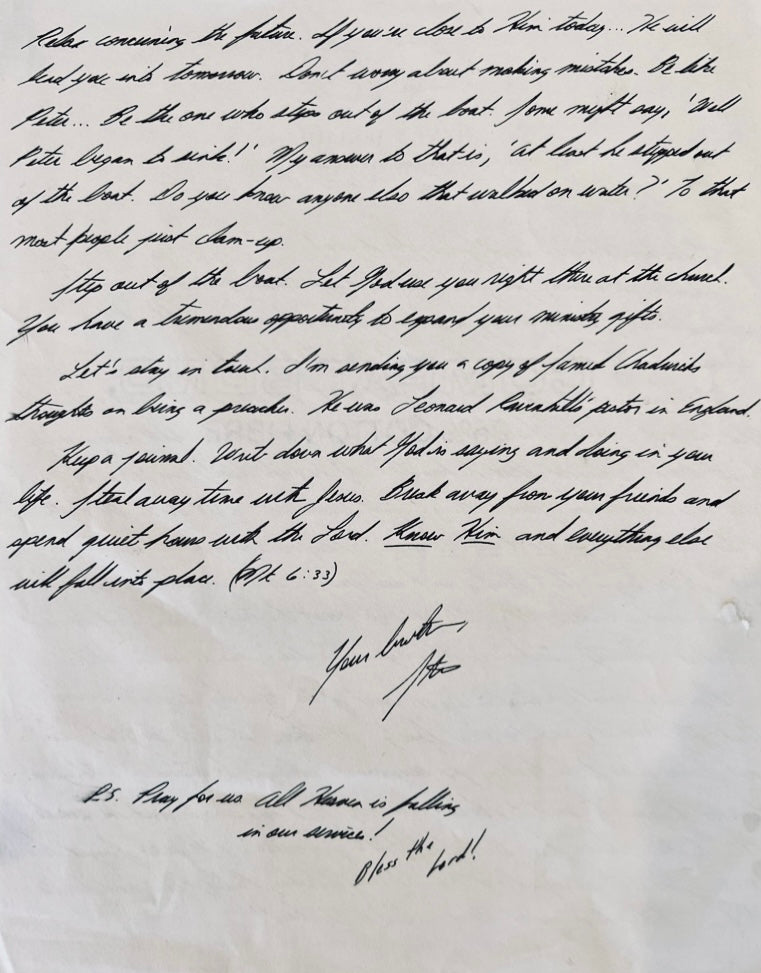 Relax concerning the future. If you're close to Him today... He will
lead you into tomorrow. Don't worry about making mistakes. Be like
Peter... Be the one who steps out of the boat. Some might say, 'Well
Peter began to sink!' My answer to that is, 'At least he stepped out
of the boat. Do you know anyone else that walked on water?' To that
most people just clam-up.
Step out of the boat. Let God use you right there at the church.
You have a tremendous opportunity to expand your ministry gifts.
Let's stay in touch. I'm sending you a copy of Samuel Chadwick's
thoughts on being a preacher. He was Leonard Ravenhill's pastor in England.
Keep a journal. Write down what God is saying and doing in your
life. Steal away time with Jesus. Break away from your friends and
spend quiet hours with the Lord. Know Him and everything else
will fall into place. (Mt 6:33)
Your brother,
P.S. Pray for us. All Heaven is falling
in our services!
Bless the Lord!